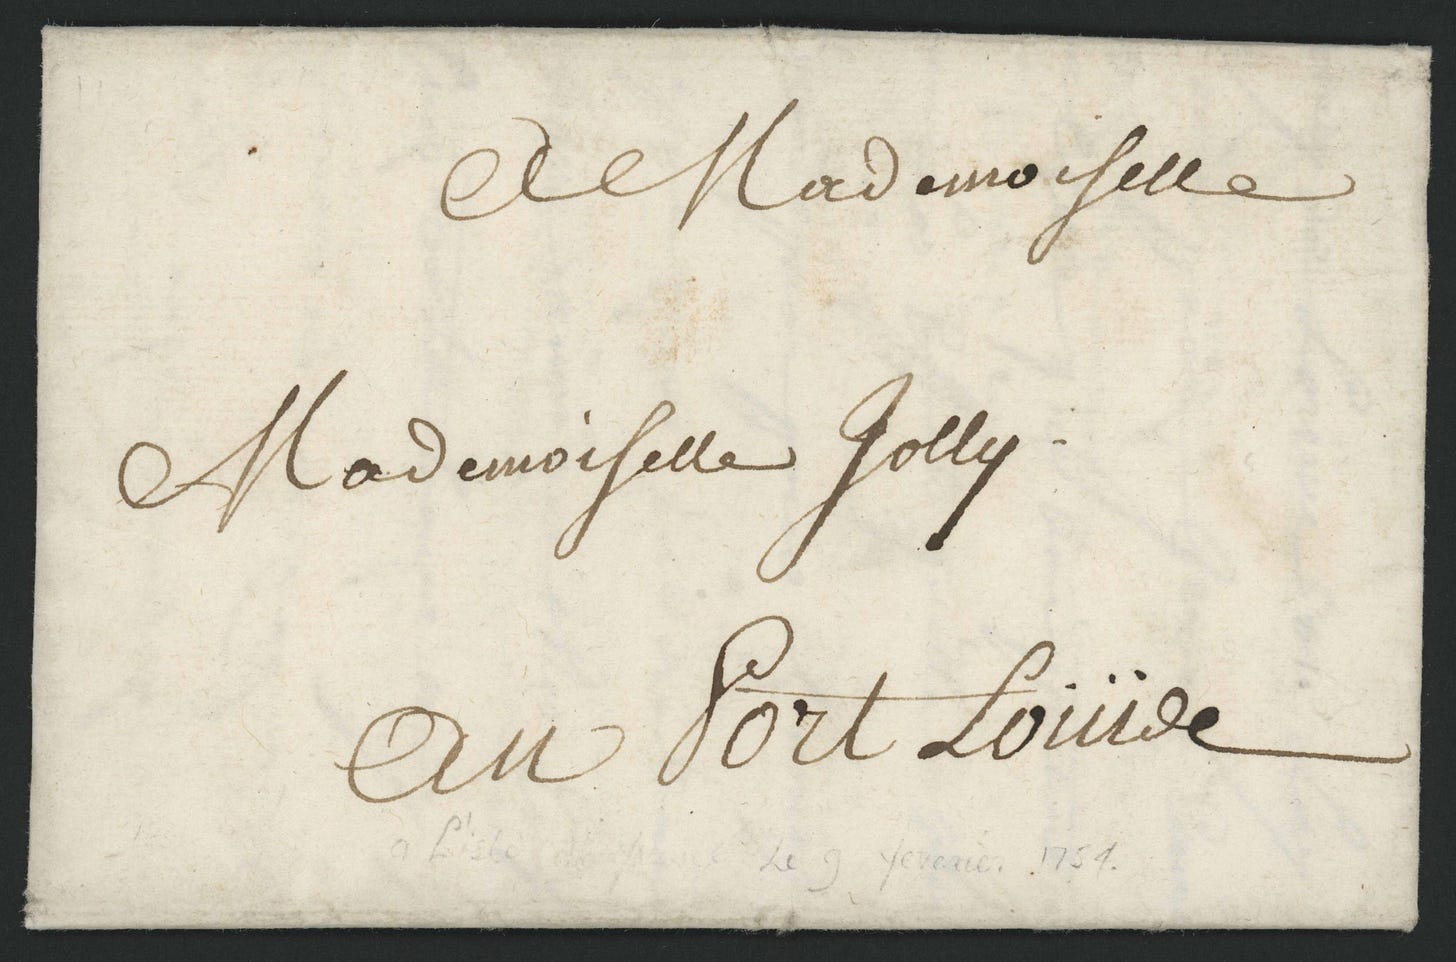 A Mademoiselle
Mademoiselle Jolly
Au Port Loüis
a L'isle de france Le 9 fevrier 1754.